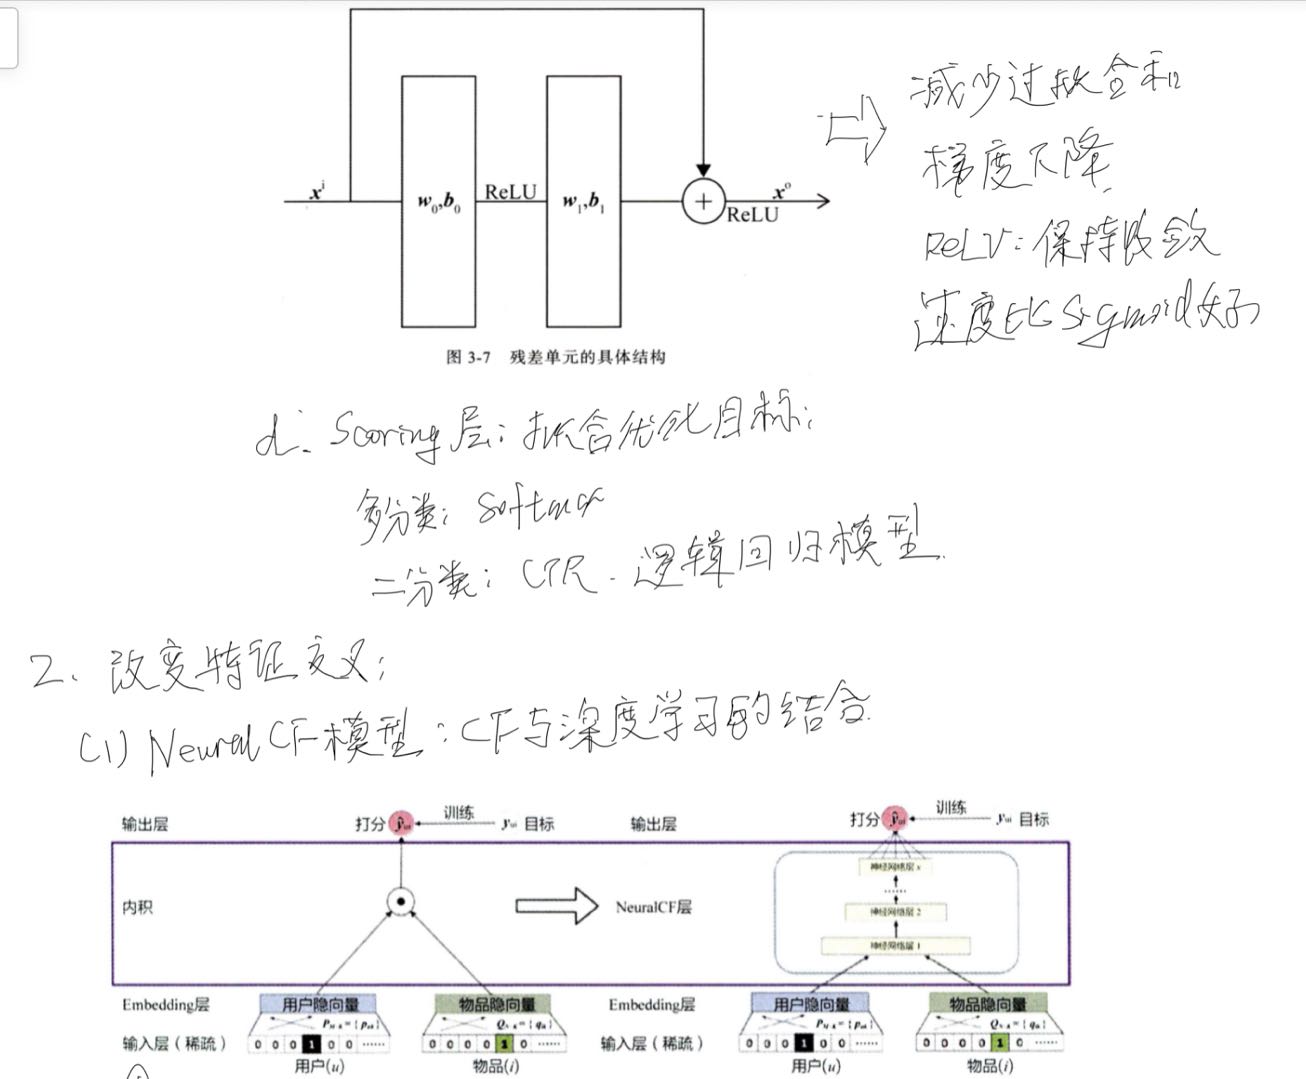 xⁱ
w₀,b₀
ReLU
w₁,b₁
+
xᵒ
ReLU
图 3-7 残差单元的具体结构
减少过拟合和
梯度下降
ReLU: 保持收敛
速度比Sigmoid好
d. Scoring层: 拟合优化目标:
多分类: softmax
二分类: CTR. 逻辑回归模型.
2. 改变特征交叉:
(1) Neural CF模型: CF与深度学习的结合.
输出层
打分
ŷᵤᵢ
训练
yᵤᵢ 目标
内积
Embedding层
用户隐向量
物品隐向量
输入层（稀疏）
0 0 0 1 0 0 ……
0 0 0 0 1 0 ……
用户(u)
物品(i)
输出层
打分
ŷᵤᵢ
训练
yᵤᵢ 目标
NeuralCF层
神经网络层 x
……
神经网络层 2
神经网络层 1
Embedding层
用户隐向量
物品隐向量
输入层（稀疏）
0 0 0 1 0 0 ……
0 0 0 0 1 0 ……
用户(u)
物品(i)